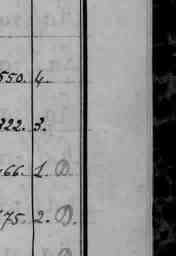 550. 4.
322. 3.
66. 1. D.
75. 2. D.